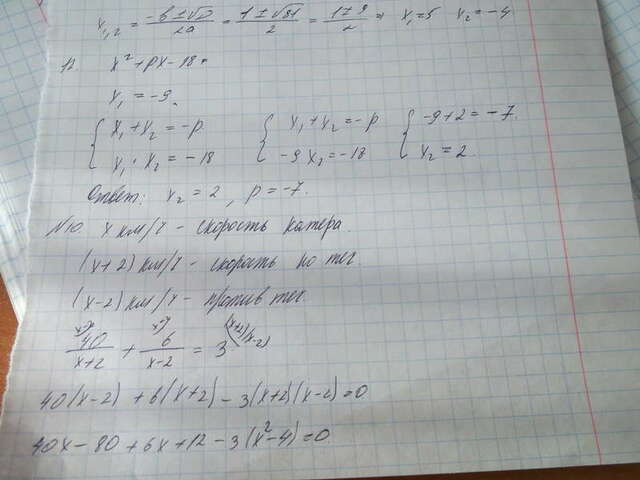 x₁,₂ = (-b ± √D)/2a = (1 ± √81)/2 = (1 ± 9)/2 ⇒ x₁ = 5 x₂ = -4
x² + px - 18
x₁ = -9.
{ x₁ + x₂ = -p { x₁ + x₂ = -p { -9 + 2 = -7.
{ x₁ · x₂ = -18 { -9x₂ = -18 { x₂ = 2.
Ответ: x₂ = 2, p = -7.
N10. x км/ч - скорость катера.
(x+2) км/ч - скорость по теч.
(x-2) км/ч - против теч.
40/(x+2) + 6/(x-2) = 3 (x+2)(x-2)
40(x-2) + 6(x+2) - 3(x+2)(x-2) = 0
40x - 80 + 6x + 12 - 3(x² - 4) = 0